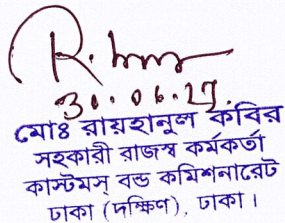 30.06.27.
মোঃ রায়হানুল কবির
সহকারী রাজস্ব কর্মকর্তা
কাস্টমস্ বন্ড কমিশনারেট
ঢাকা (দক্ষিণ), ঢাকা।